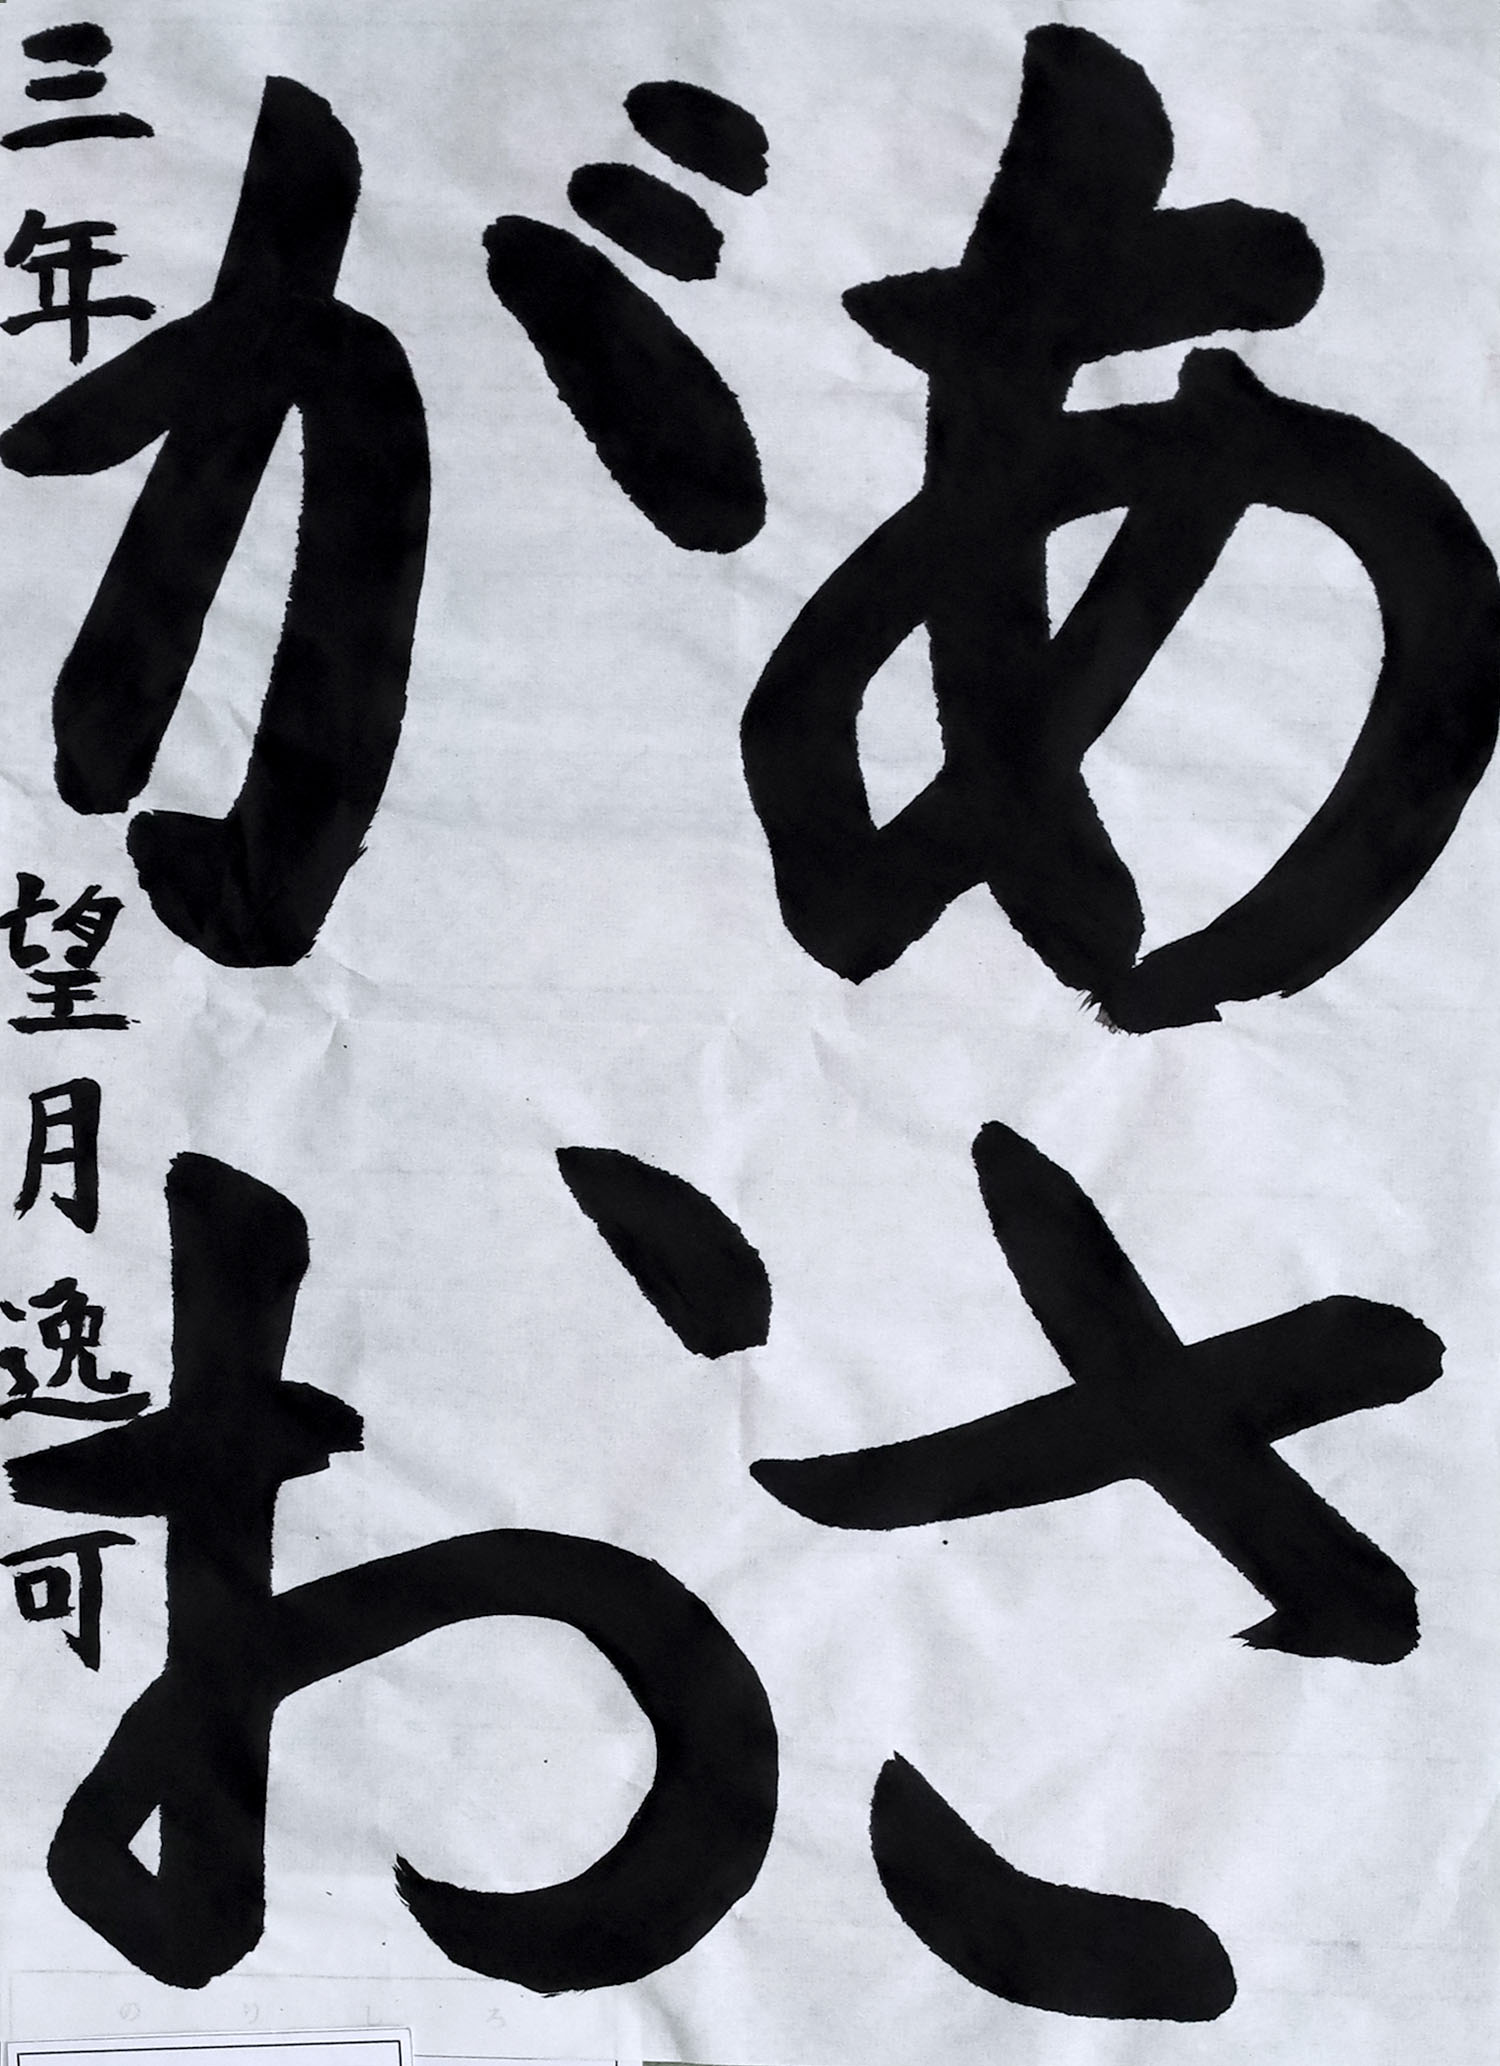 あさ
がお
三年 望月逸可
のりしろ